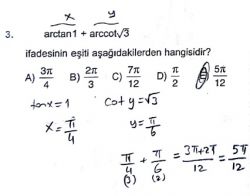 x y
3. arctan1 + arccot√3
ifadesinin eşiti aşağıdakilerden hangisidir?
A) 3π/4 B) 2π/3 C) 7π/12 D) π/2 E) 5π/12
tanx = 1 cot y = √3
x = π/4 y = π/6
π/4 + π/6 = 3π+2π/12 = 5π/12
(3) (2)